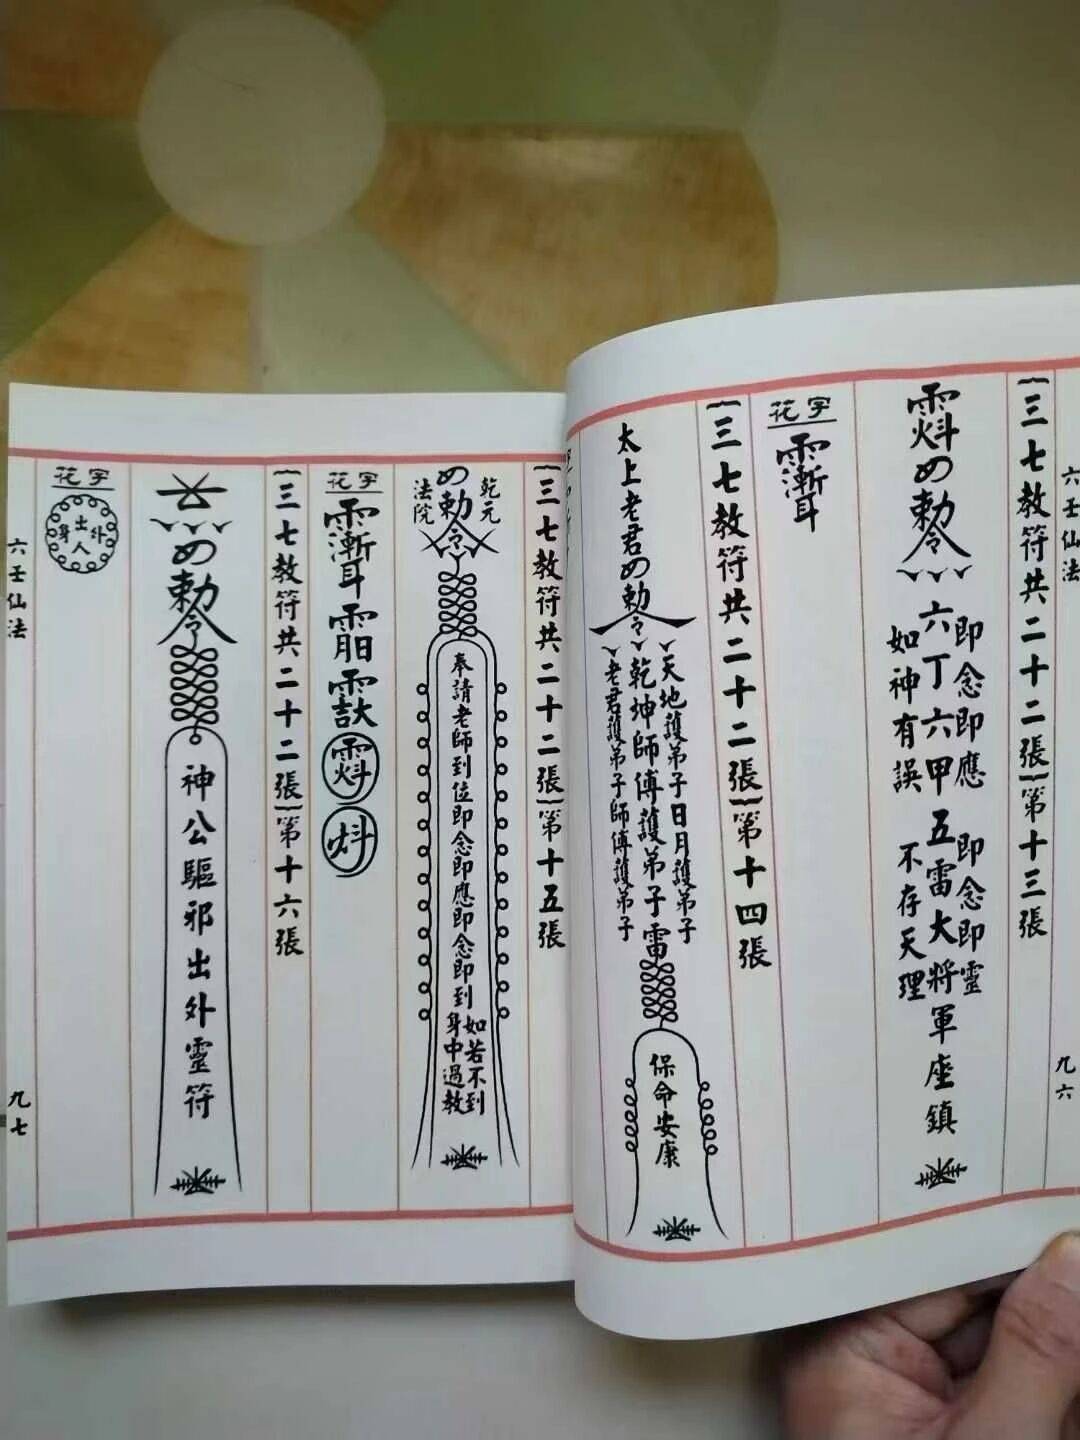 六壬仙法
九六
︹三七教符共二十二張︺第十三張
勅令
即念即應
即念即靈
六丁六甲五雷大將軍座鎮
如神有誤
不存天理
花字
︹三七教符共二十二張︺第十四張
太上老君勅令
天地護弟子日月護弟子
乾坤師傅護弟子雷
老君護弟子師傅護弟子
保命安康
︹三七教符共二十二張︺第十五張
乾元
勅令
法院
奉請老師到位即念即應即念即到
如若不到
身中過教
花字
︹三七教符共二十二張︺第十六張
勅令
神公驅邪出外靈符
花字
出外
人身
六壬仙法
九七